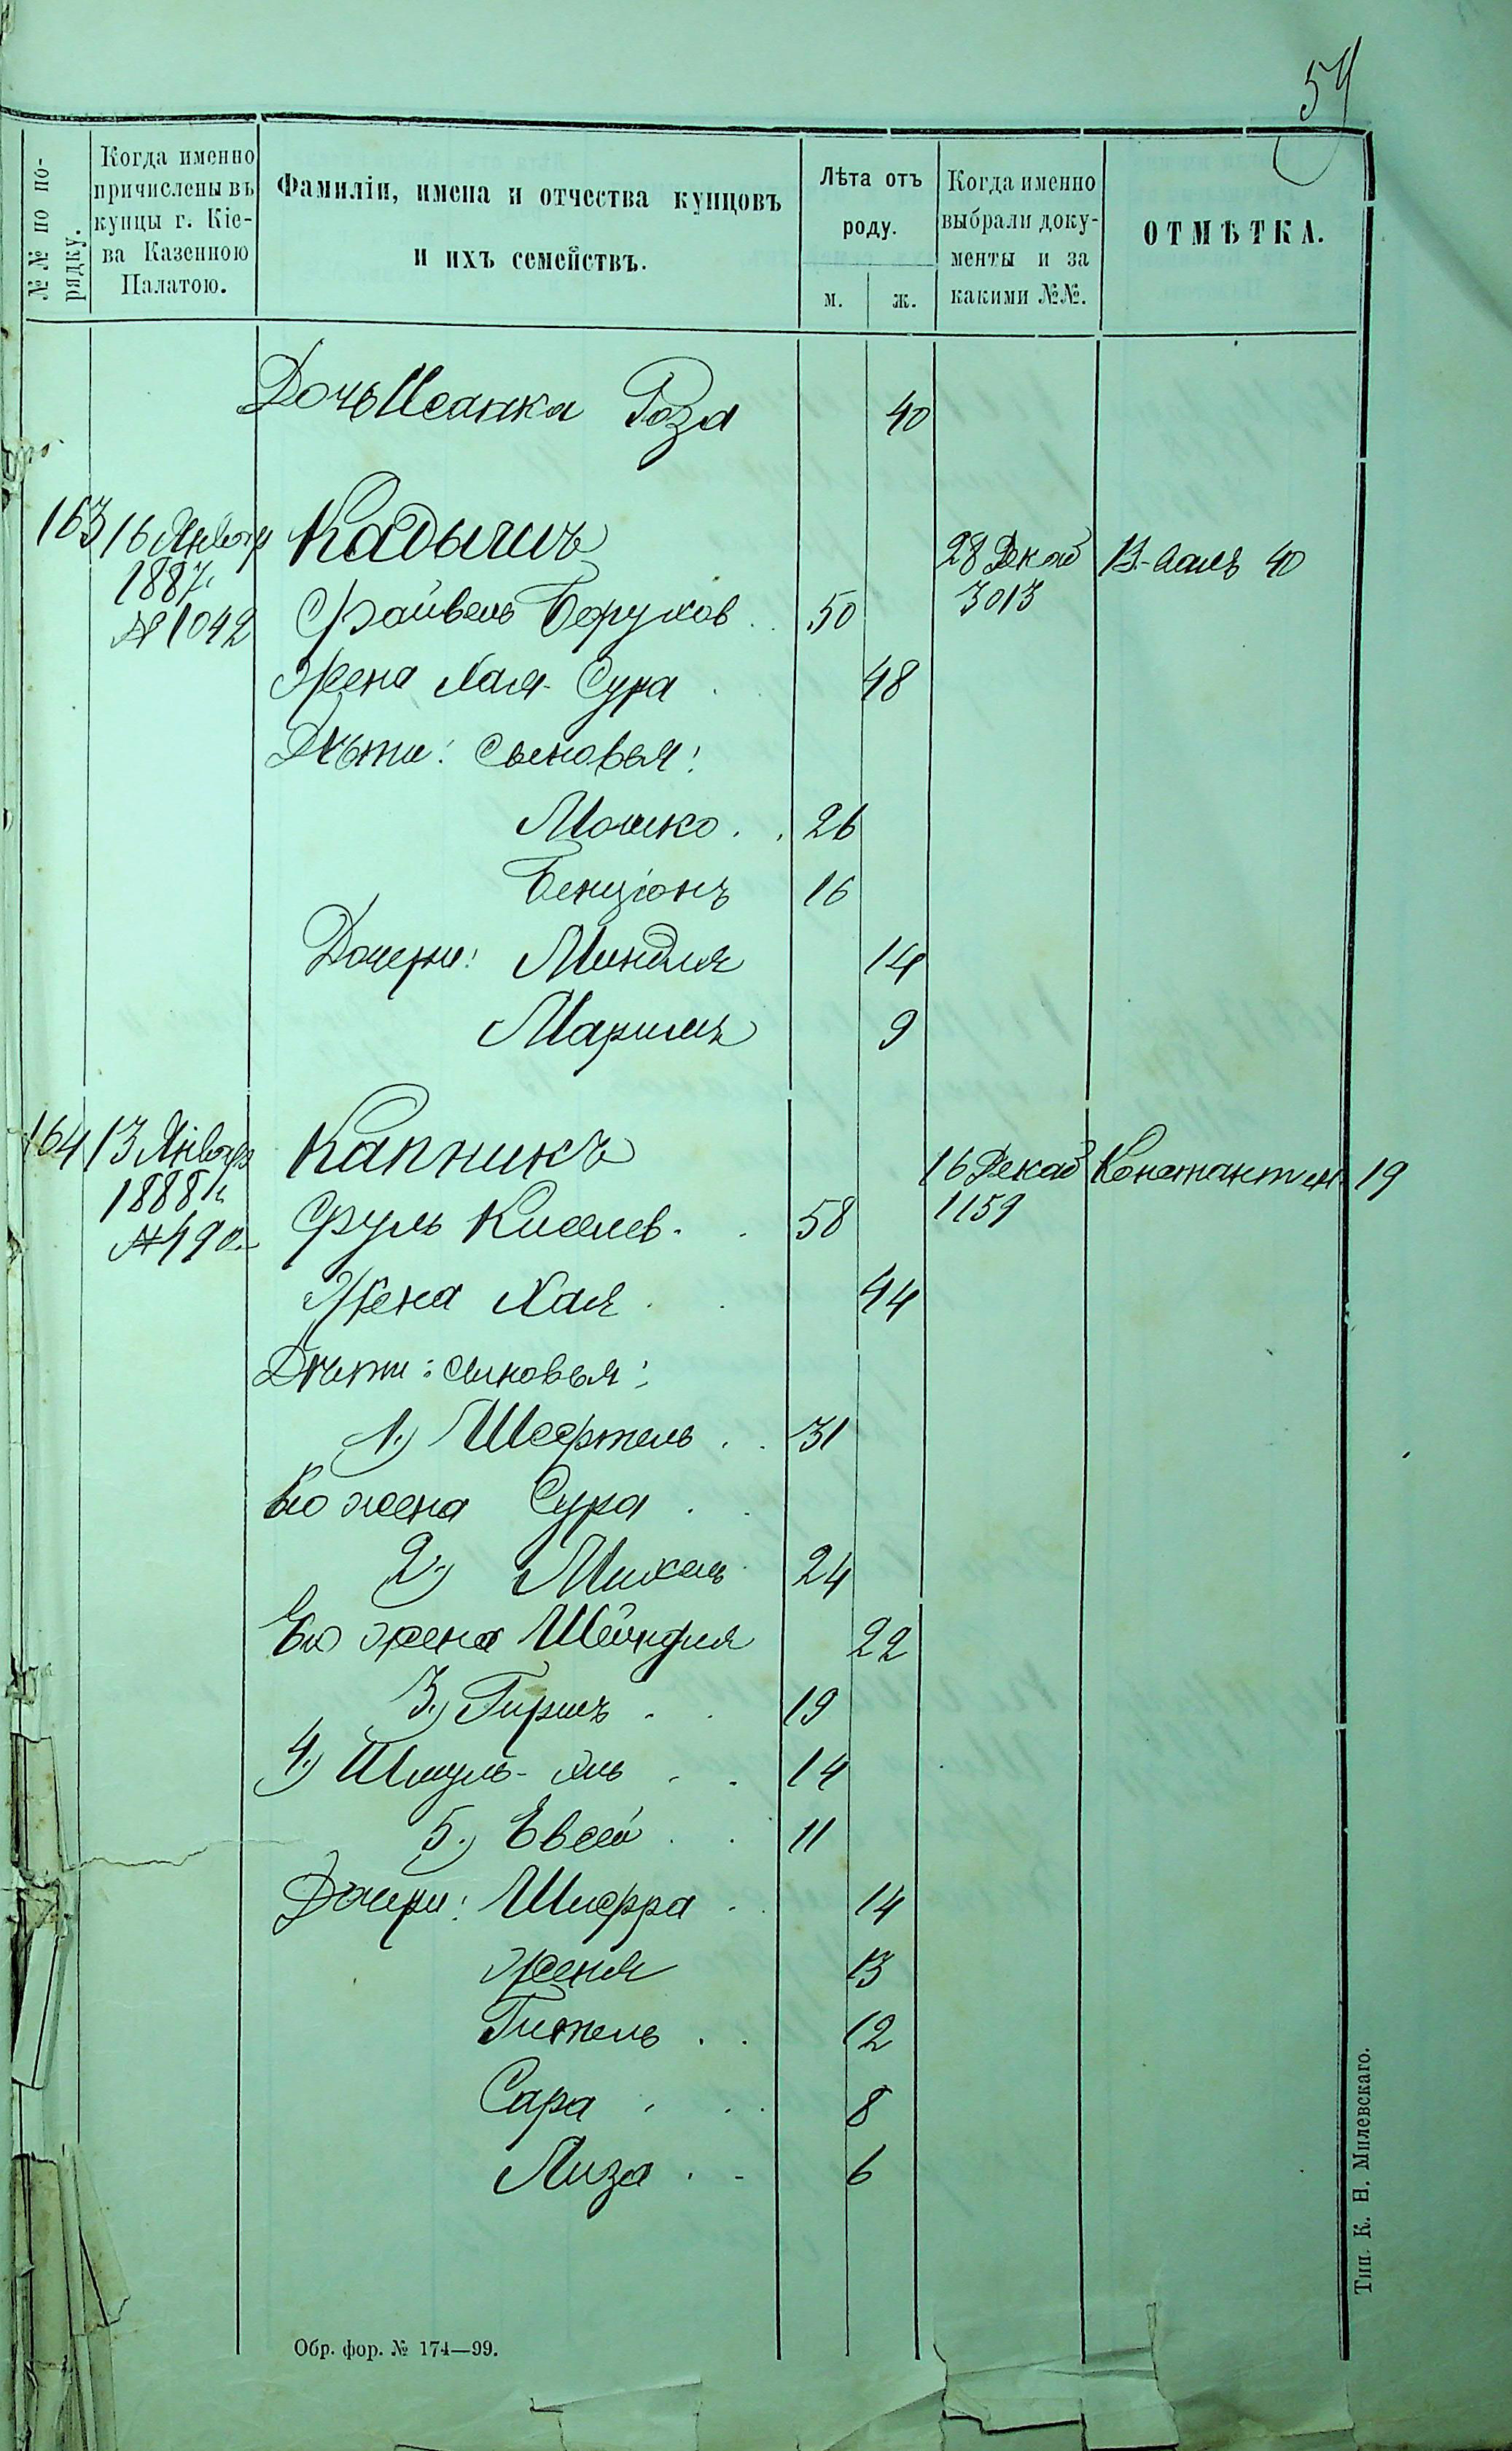 59
№№ по по-
рядку.
Когда именно
причислены въ
купцы г. Кіе-
ва Казенною
Палатою.
Фамиліи, имена и отчества купцовъ
и ихъ семействъ.
Лѣта отъ
роду.
м. ж.
Когда именно
выбрали доку-
менты и за
какими №№.
ОТМѢТКА.
Дочь Исаака Роза 40
163 16 Января Кадышъ 28 Декаб 40
1887 г. 3013
№ 1042 Файвель Борухов 50
Жена Хая-Сура 48
Дѣти: сыновья:
Мошко 26
Бенціонъ 16
Дочери: Миндля 14
Маримъ 9
164 13 Января Капникъ 16 Декаб Константин 19
1888 г. 1159
№ 490 Сруль Киселев 58
Жена Хая 44
Дѣти: сыновья:
1.) Шефтель 31
Его жена Сура
2.) Михель 24
Его жена Шейндля 22
3.) Гиршъ 19
4.) Шмуль- 14
5.) Евсей 11
Дочери: Шифра 14
Женя 13
Гитель 12
Сара 8
Лиза 6
Обр. фор. № 174—99.
Тип. К. Н. Милевскаго.